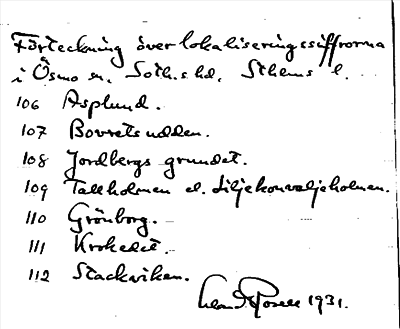 Förteckning över lokaliseringssiffrorna
i Ösmo sn. Soth.s hd, Sthems l.
106 Asplund.
107 Bovretsudden.
108 Jordbergsgrundet.
109 Tallholmen el. Liljekonvaljeholmen.
110 Grönborg.
111 Krokedet.
112 Stackviken.
1931.